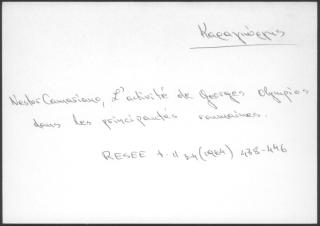 Καραγιώργης
Nestor Camariano, L'activité de Georges Olympios
dans les principautés roumaines.
RESEE t. II 3-4 (1964) 438-446